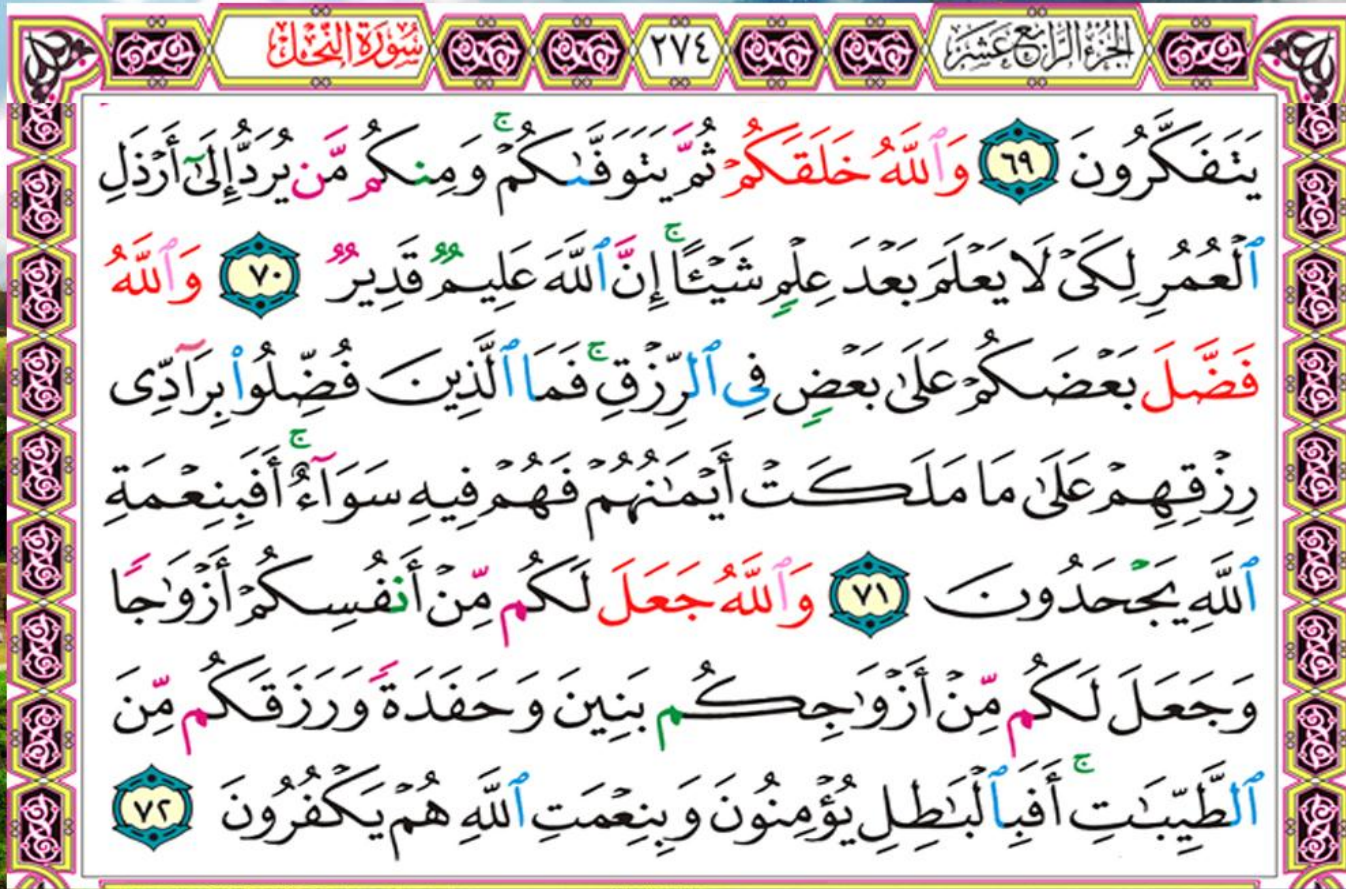 الجزء الرابع عشر ٢٧٤ سُورَةُ النَّحْلِ
يَتَفَكَّرُونَ ٦٩ وَٱللَّهُ خَلَقَكُمْ ثُمَّ يَتَوَفَّىٰكُمْ ۚ وَمِنكُم مَّن يُرَدُّ إِلَىٰٓ أَرْذَلِ
ٱلْعُمُرِ لِكَىْ لَا يَعْلَمَ بَعْدَ عِلْمٍ شَيْـًٔا ۚ إِنَّ ٱللَّهَ عَلِيمٌ قَدِيرٌ ٧٠ وَٱللَّهُ
فَضَّلَ بَعْضَكُمْ عَلَىٰ بَعْضٍ فِى ٱلرِّزْقِ ۚ فَمَا ٱلَّذِينَ فُضِّلُوا۟ بِرَآدِّى
رِزْقِهِمْ عَلَىٰ مَا مَلَكَتْ أَيْمَـٰنُهُمْ فَهُمْ فِيهِ سَوَآءٌ ۚ أَفَبِنِعْمَةِ
ٱللَّهِ يَجْحَدُونَ ٧١ وَٱللَّهُ جَعَلَ لَكُم مِّنْ أَنفُسِكُمْ أَزْوَٰجًا
وَجَعَلَ لَكُم مِّنْ أَزْوَٰجِكُم بَنِينَ وَحَفَدَةً وَرَزَقَكُم مِّنَ
ٱلطَّيِّبَـٰتِ ۚ أَفَبِٱلْبَـٰطِلِ يُؤْمِنُونَ وَبِنِعْمَتِ ٱللَّهِ هُمْ يَكْفُرُونَ ٧٢